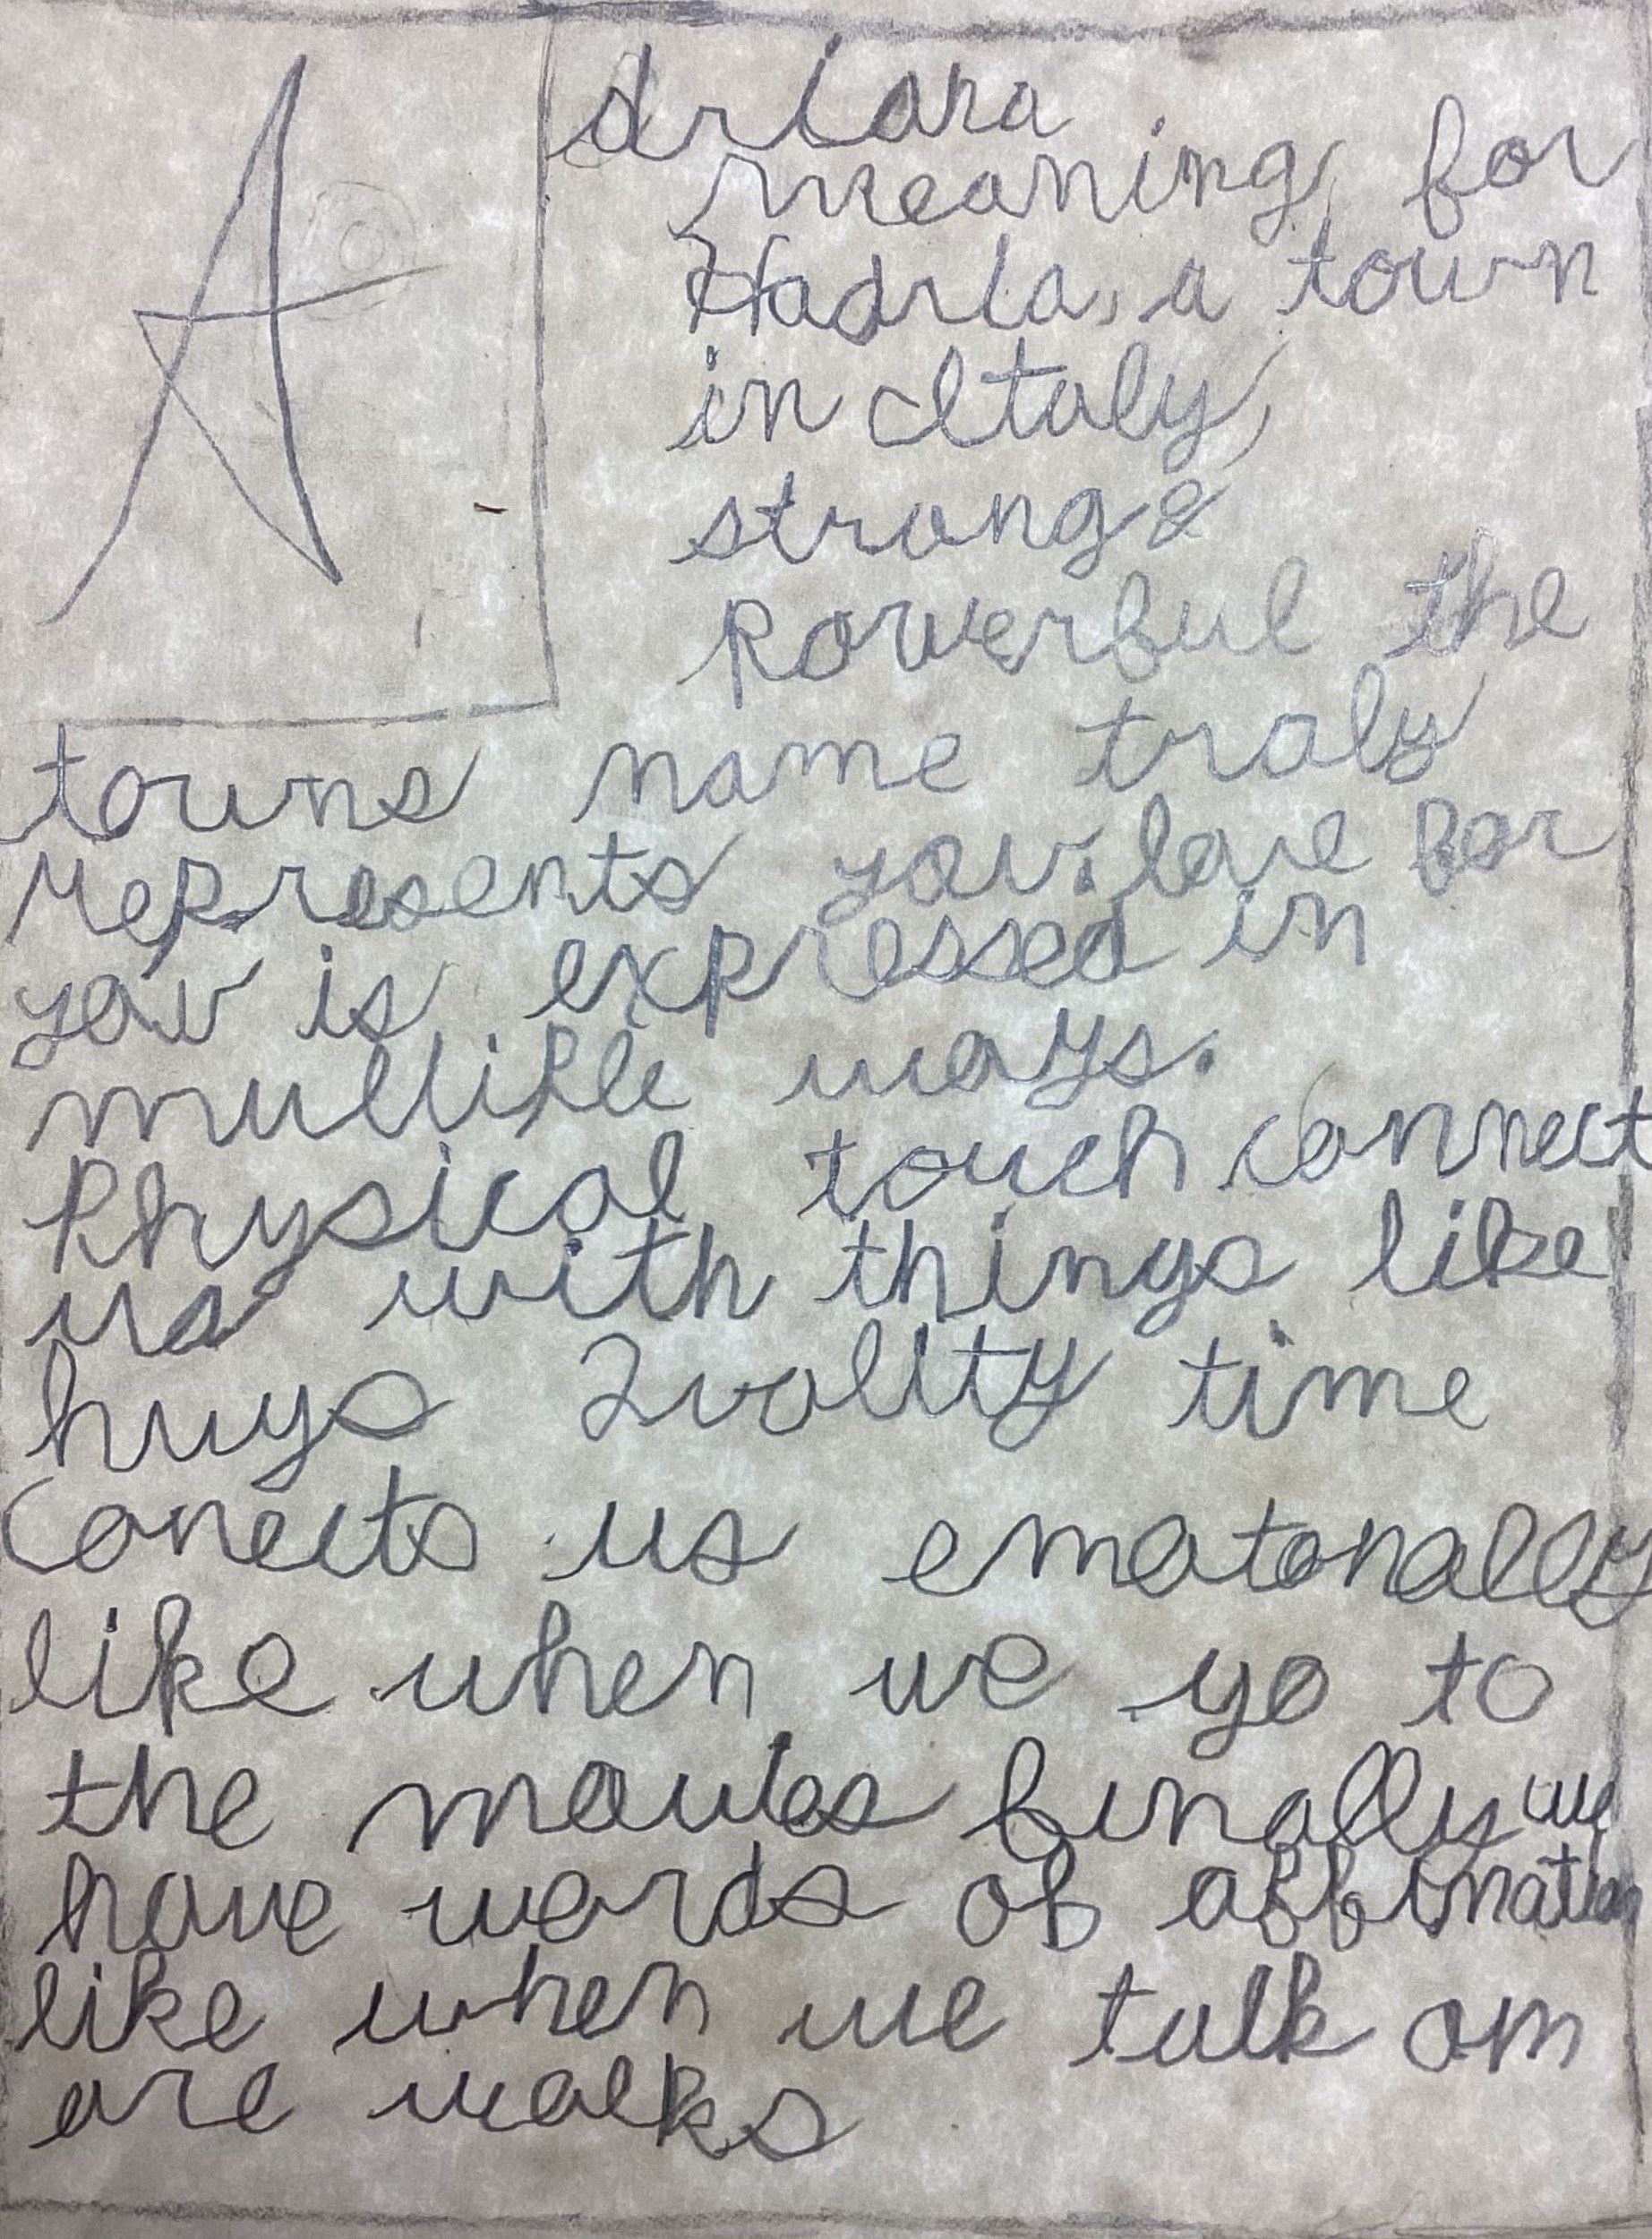 Adriana
meaning for
Hadria, a town
in Italy,
strong &
powerful the
towns name truly
represents you. love for
you is expressed in
multiple ways.
Physical touch connect
us with things like
hugs Quality time
Conects us ematonally
like when we go to
the movies finally we
have words of affirmation
like when we talk om
are walks